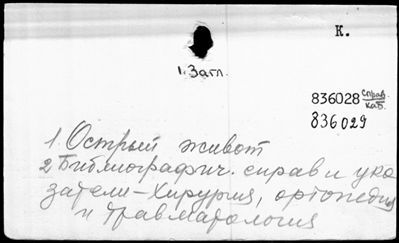 К.
1. Загл.
836028 справ. каб.
836029
1. Острый живот
2 Библиографич. справ и ука
затели - Хирургия, ортопедия
и травматология